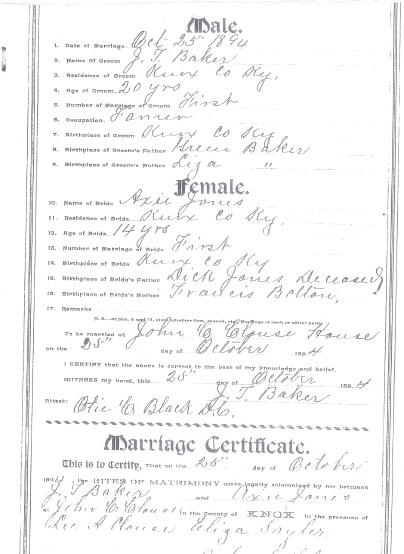 Male.
1. Date of Marriage Oct 25" 1894
2. Name of Groom J. T. Baker
3. Residence of Groom Knox Co Ky.
4. Age of Groom 20 yrs
5. Number of Marriage of Groom First
6. Occupation Farmer
7. Birthplace of Groom Knox Co Ky
8. Birthplace of Groom's Father Green Baker
9. Birthplace of Groom's Mother Liza "
Female.
10. Name of Bride Axie Jones
11. Residence of Bride Knox Co Ky.
12. Age of Bride 14 yrs
13. Number of Marriage of Bride First
14. Birthplace of Bride Knox Co Ky
15. Birthplace of Bride's Father Dick Jones Deceased
16. Birthplace of Bride's Mother Francis Bolton,
17. Remarks
To be married at John C Clouse House
on the 25" day of October 1894
I CERTIFY that the above is correct to the best of my knowledge and belief.
WITNESS my hand, this 25" day of October 1894
J. T. Baker
Attest: Otie C Black D.C.
Marriage Certificate.
This is to Certify, That on the 25" day of October
1894, the RITES OF MATRIMONY were legally solemnized by me between
J. T Baker and Axie Jones
at John C Clouse in the County of KNOX in the presence of
Lee A Clouse Eliza Sayler